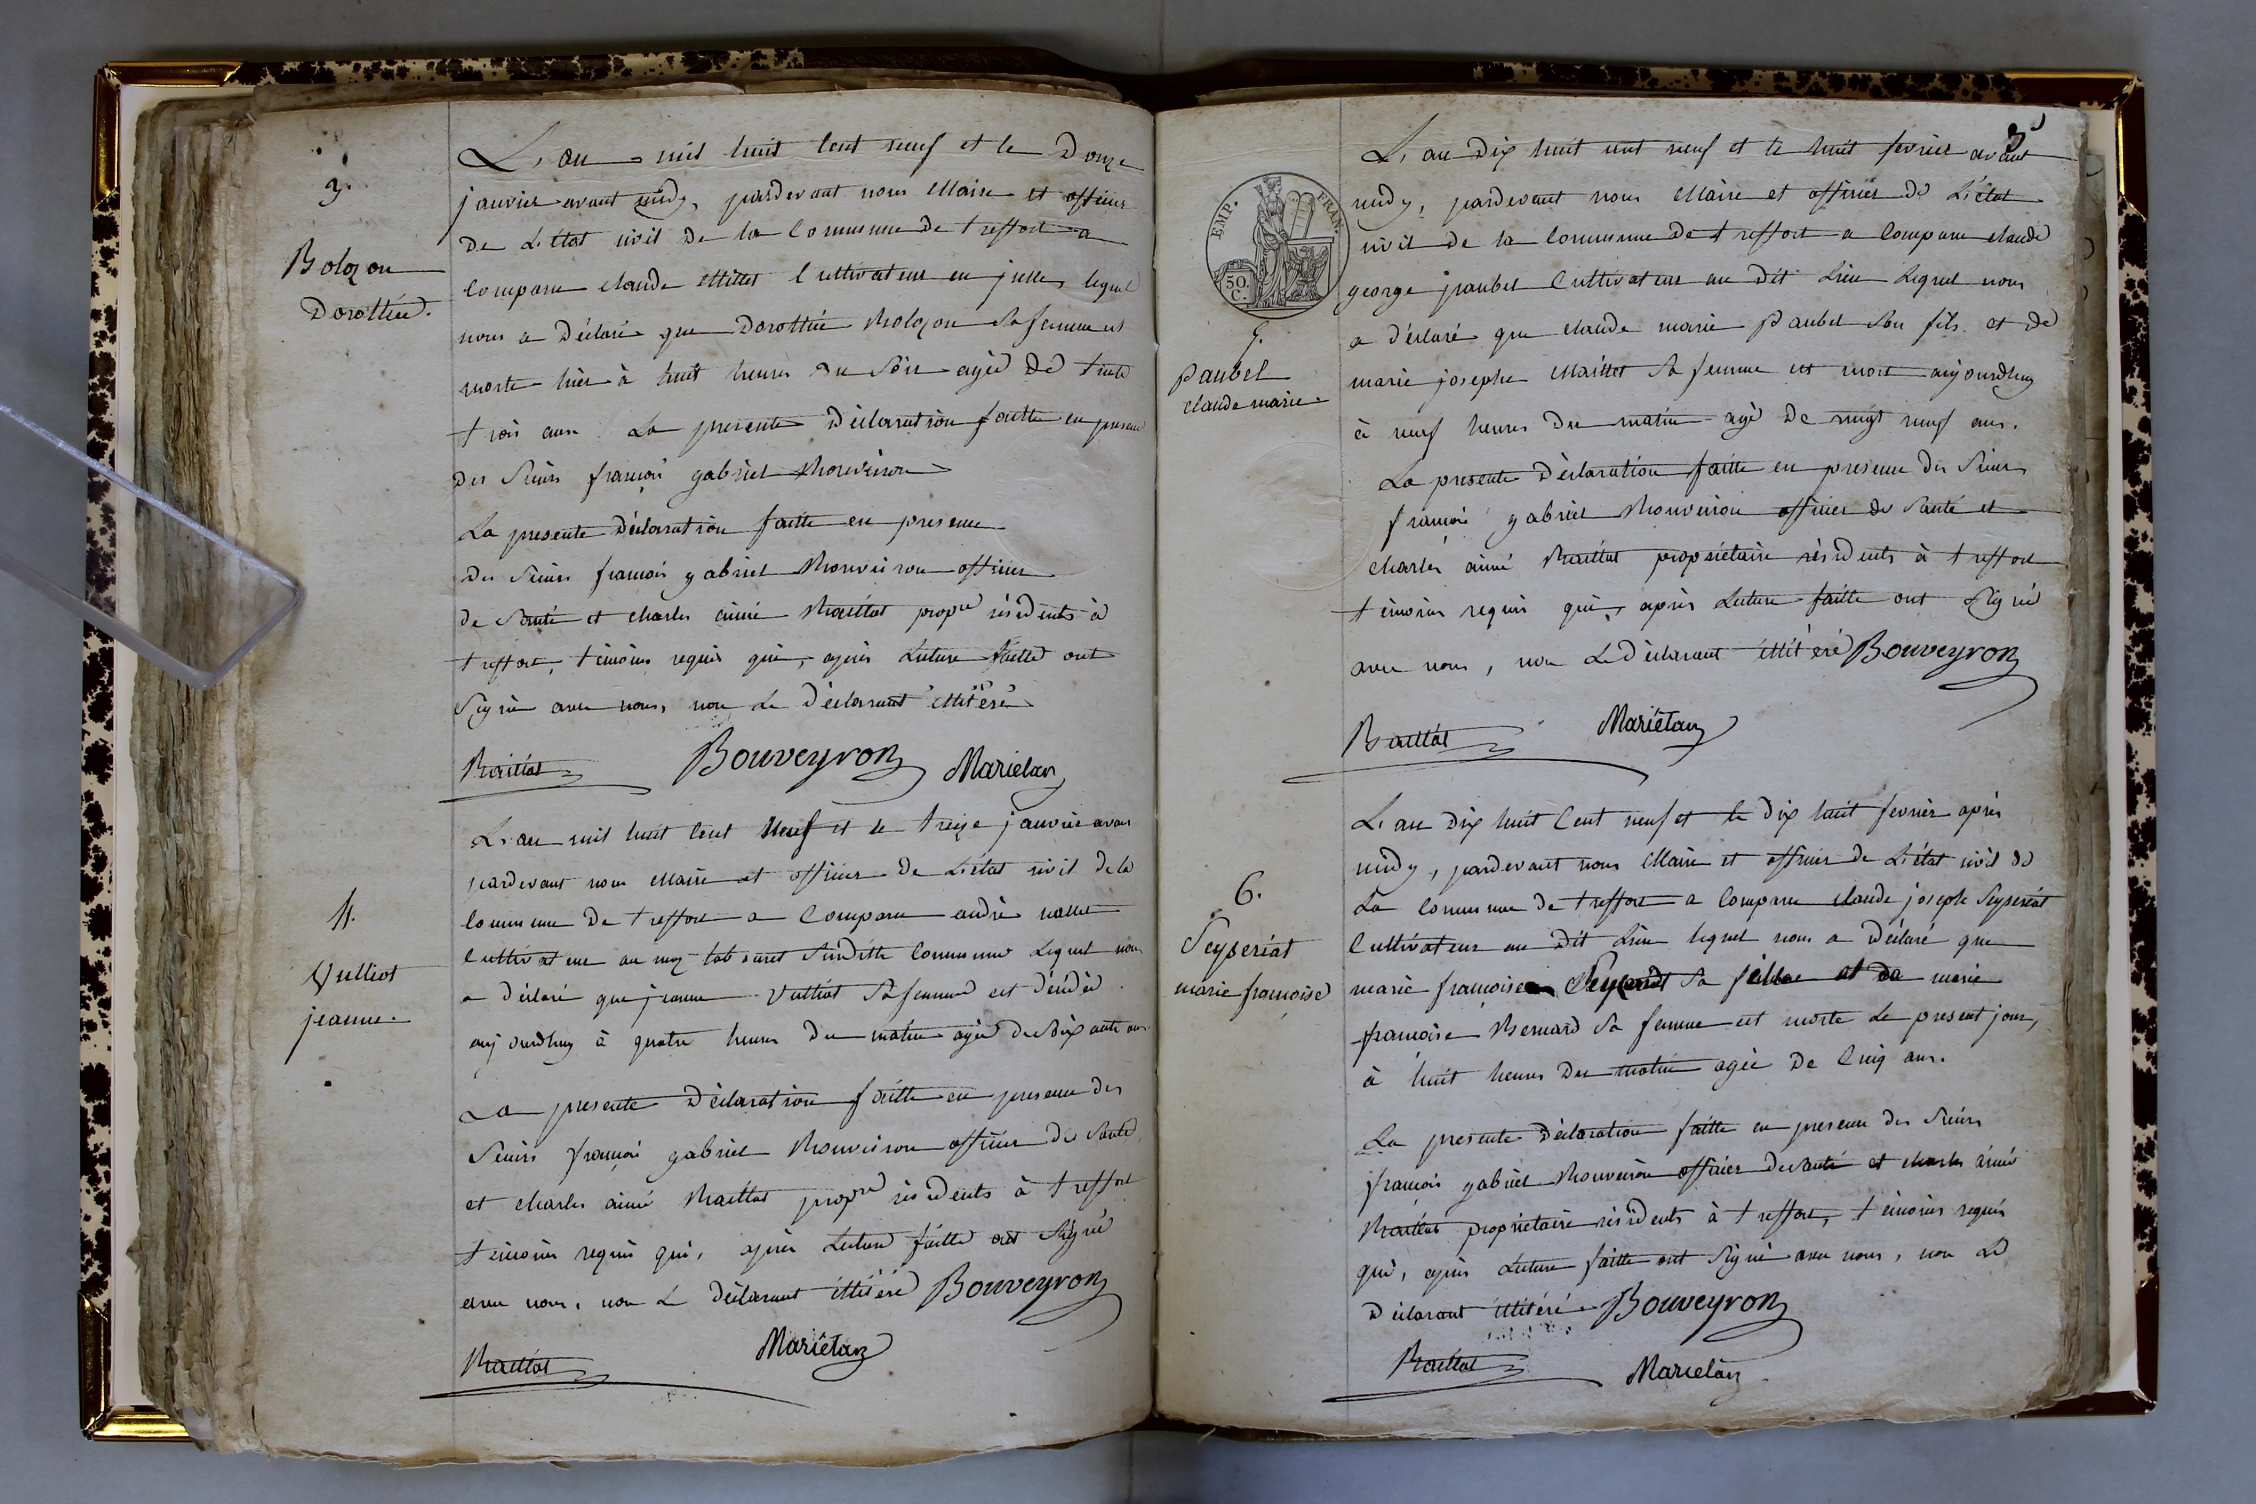 3.
Bolozon
Dorothée.
L'an mil huit cent neuf et le Douze
janvier avant midy, pardevant nous Maire et officier
de L'Etat civil de la Commune de treffort a
comparu claude Millet Cultivateur en lequel
nous a Déclaré que Dorothée Bolozon Sa femme est
morte hier à huit heures du Soir agée de trente
trois ans. La presente Déclaration faitte en presence
des Sieurs françois gabriel Bouveiron
La presente Déclaration faitte en presence
des Sieurs françois gabriel Bouveiron officier
de Santé et charles aimé Raillat propre résidents à
treffort, témoins requis qui, après Lecture faitte ont
Signé avec nous, non Le Déclarant illitéré
Raillat Bouveyron Mariétan
4.
Vulliot
jeanne.
L'an mil huit Cent Neuf et le treize janvier avant
pardevant nous Maire et officier De L'état civil de la
Commune De treffort a Comparu andré
Cultivateur au Susditte Commune Lequel nous
a Déclaré que jeanne Vulliot Sa femme est Décédée
aujourdhuy à quatre heures Du matin agée de Soixante ans
La presente Déclaration faitte en presence des
Sieurs françois gabriel Bouveiron officier De Santé,
et charles aimé Raillat propre résidents à treffort
témoins requis qui, après Lecture faitte ont Signé
avec nous, non Le Déclarant illitéré Bouveyron
Raillat Mariétan
3
EMP. FRAN.
50. C.
5.
Paubel
claude marie.
L'an Dix huit cent neuf et le huit fevrier avant
midy, pardevant nous Maire et officier de L'état
civil de la Commune de treffort a Comparu claude
george paubel Cultivateur au Dit Lieu Lequel nous
a déclaré que claude marie paubel Son fils et de
marie josephe Maillet Sa femme est mort aujourdhuy
à neuf heures Du matin agé De vingt neuf ans.
La presente Déclaration faitte en presence des Sieurs
françois gabriel Bouveiron officier de Santé et
charles aimé Raillat propriétaire résidents à treffort
témoins requis qui, après Lecture faitte ont Signé
avec nous, non Le Déclarant illitéré Bouveyron
Raillat Mariétan
6.
Seyseriat
marie françoise
L'an Dix huit Cent neuf et le Dix huit fevrier après
midy, pardevant nous Maire et officier de L'état civil de
La Commune de treffort a Comparu claude joseph Seyseriat
Cultivateur au Dit Lieu lequel nous a Déclaré que
marie françoise Seyseriat Sa fille et de marie
françoise Bernard Sa femme est morte Le present jour,
à huit heures Du matin agée De Cinq ans.
La presente Déclaration faitte en presence des Sieurs
françois gabriel Bouveiron officier de Santé et charles aimé
Raillat propriétaire résidents à treffort, témoins requis
qui, après Lecture faitte ont Signé avec nous, non Le
Déclarant illitéré Bouveyron
Raillat Mariétan